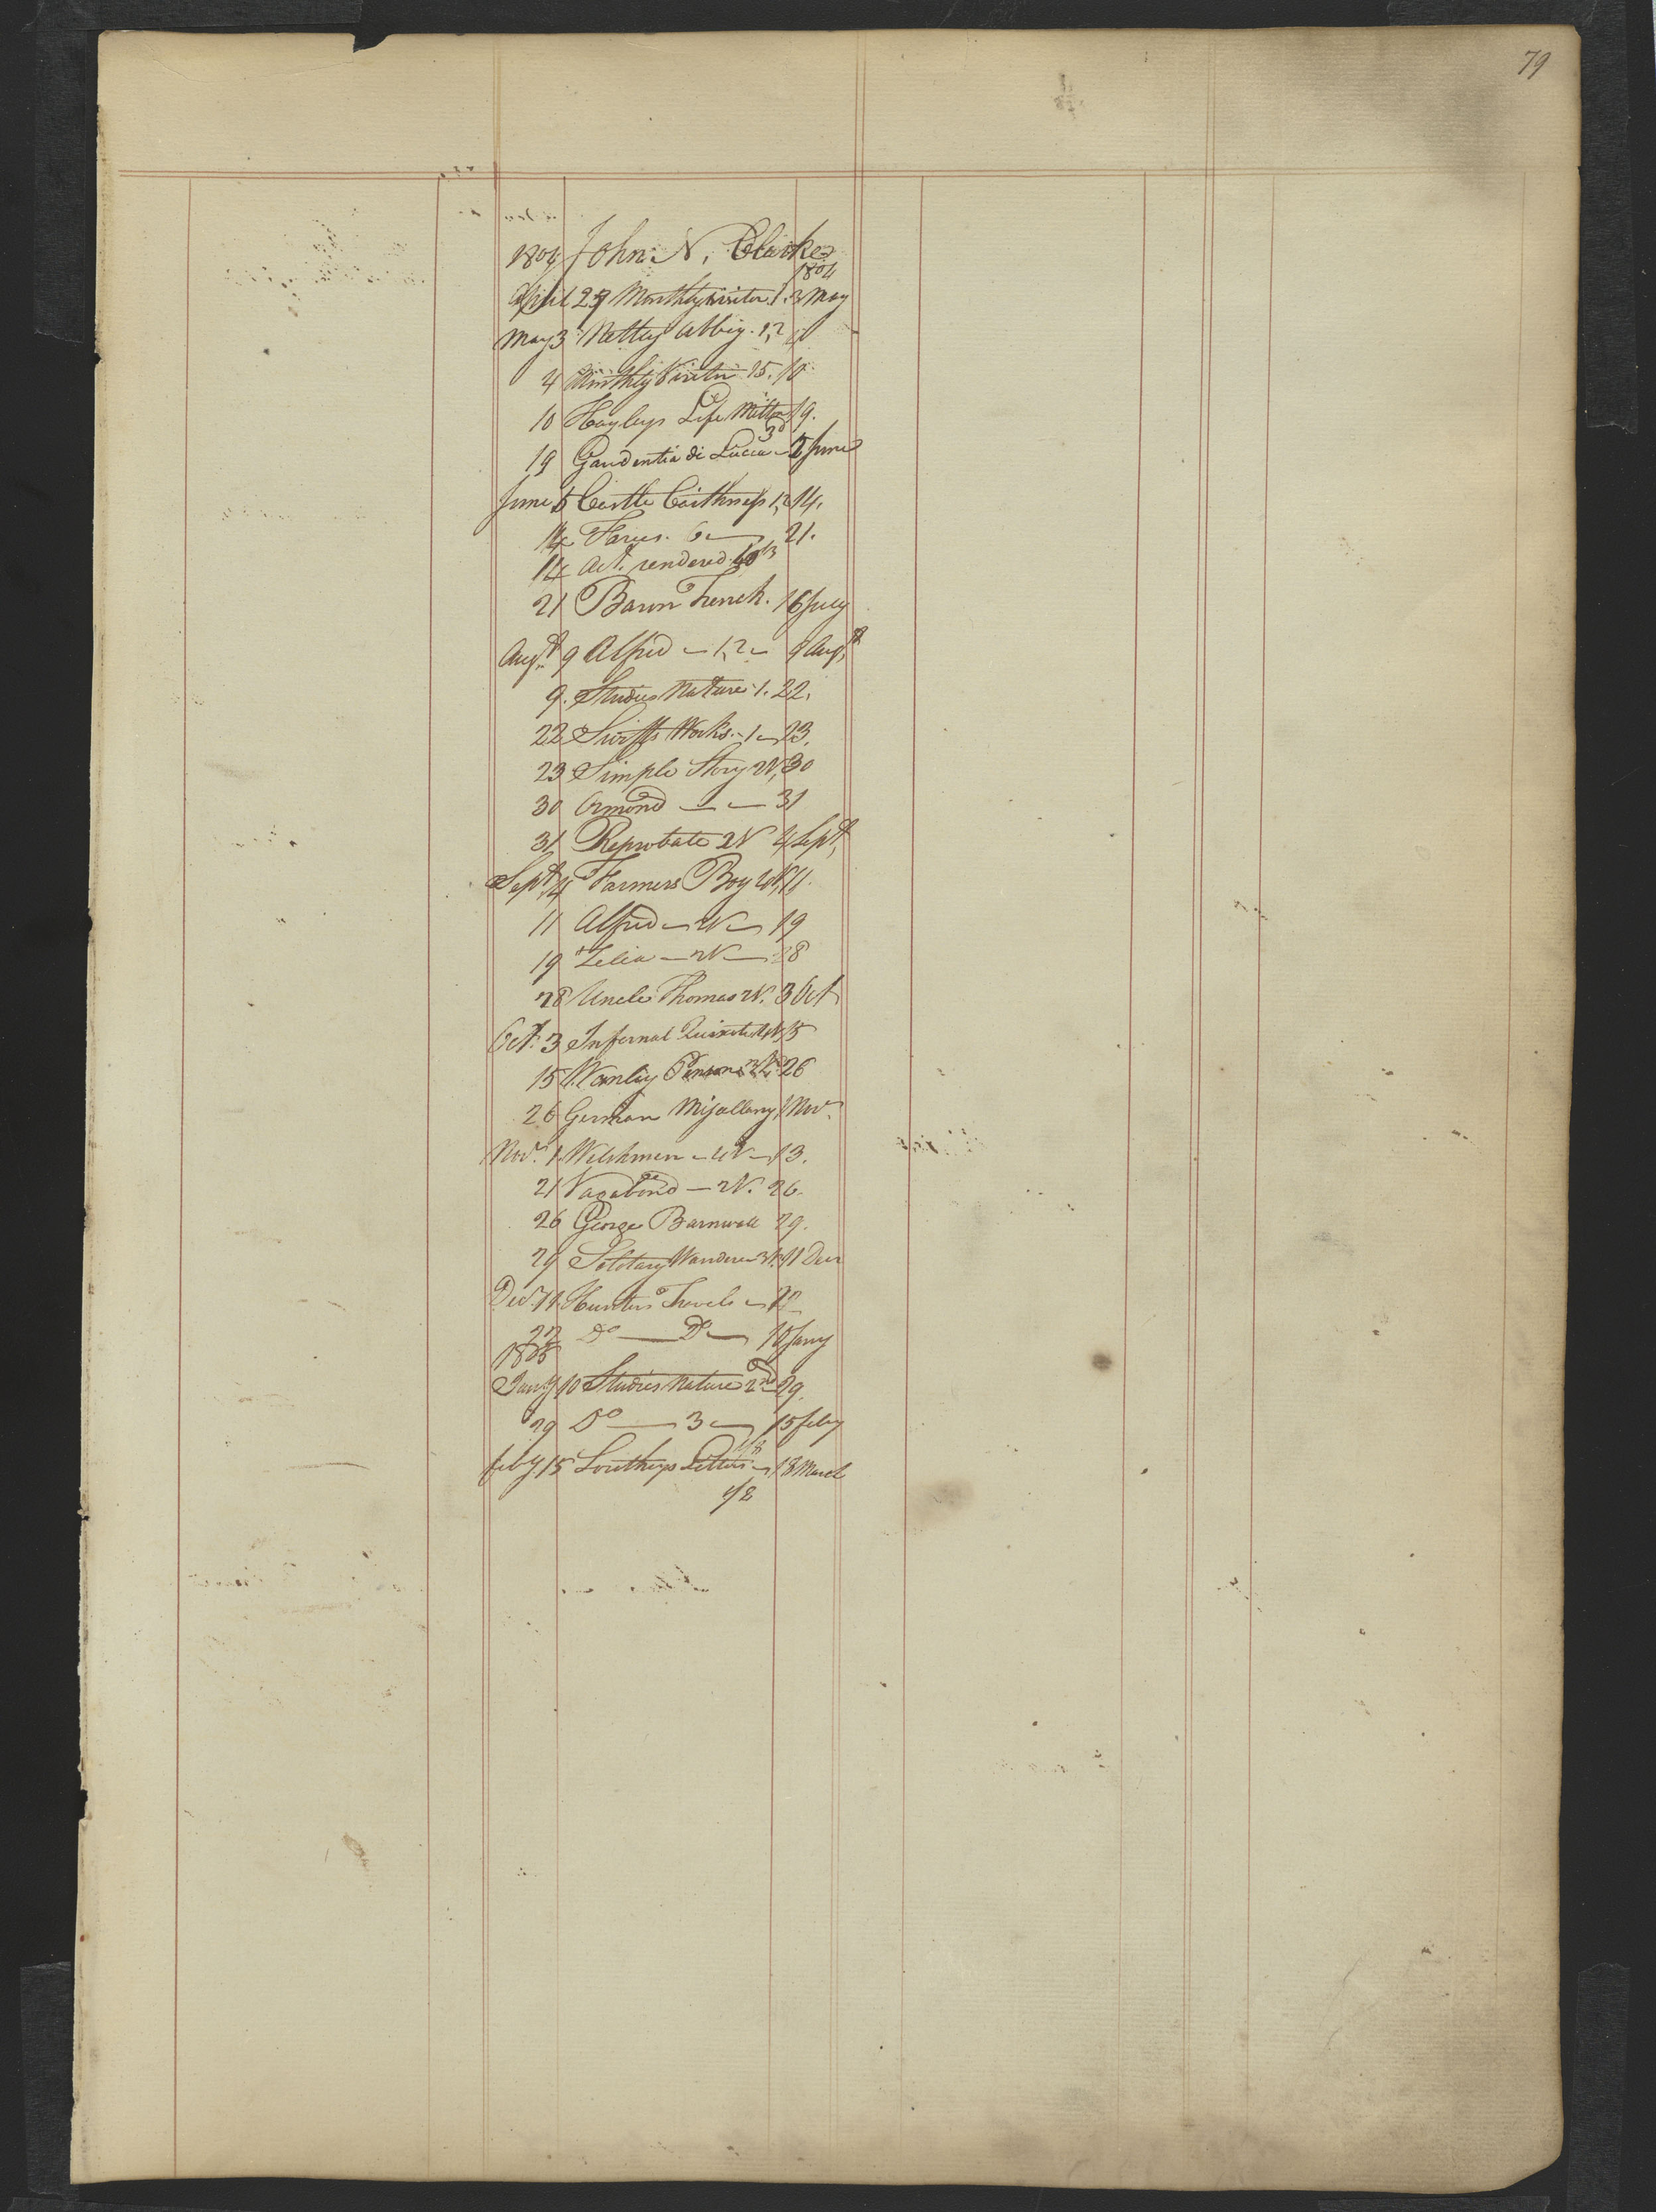 79
1804 John N. Clarke
1804
April 27 Monthly Visitor 1. 3 May
May 3 Netley Abbey. 1,2
4 Monthly Visitor 15. 10
10 Hayleys Life Milton 19.
3d
19 Gaudentia di Lucca 5 June
June 5 Castle Caithness 1,2 14.
14 Farces. 6 — 21.
14 Act. rendered
21 Baron Trenck. 16 July
Augt. 9 Alfred — 1,2 — 9 Augt.
9. Studies Nature 1. 22.
22 Swifts Works. — 1 — 23.
23 Simple Story 2V, 30
30 Ormond — — 31
31 Reprobate 2V 4 Sept,
Sept. 4 Farmers Boy 11.
11 Alfred — 2V — 19
19 Zelia — 2V — 28
28 Uncle Thomas 2V. 3 Oct
Oct. 3 Infernal Quixote 4V, 15
15 Wanley Penson 26
26 German Misallany 1 Nov.
Nov. 1. Welchmen — 4V — 13.
21 Vagabond — 2V. 26.
26 George Barnwell 29.
29 Solitary Wanderer 3V. 11 Decr
Decr. 11. Hunters Travels — 22
22 Do — Do — 10 Jany
1805
Jany 10 Studies Nature 2nd 29.
29 Do — 3 — 15 feby
feby 15 Southeys Letters — 13 March
1/2